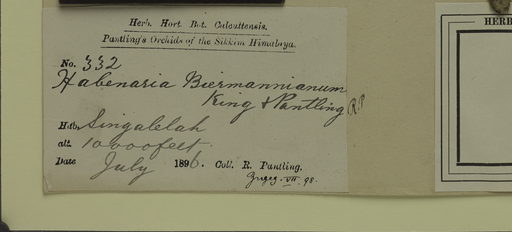 Herb. Hort. Bot. Calcuttensis.
Pantling's Orchids of the Sikkim Himalaya.
No. 332
Habenaria Biermannianum
King & Pantling R.P.
Hab. Singalelah
alt. 10,000 feet
Date July 1896. Coll. R. Pantling.
VII. 98.
HERB